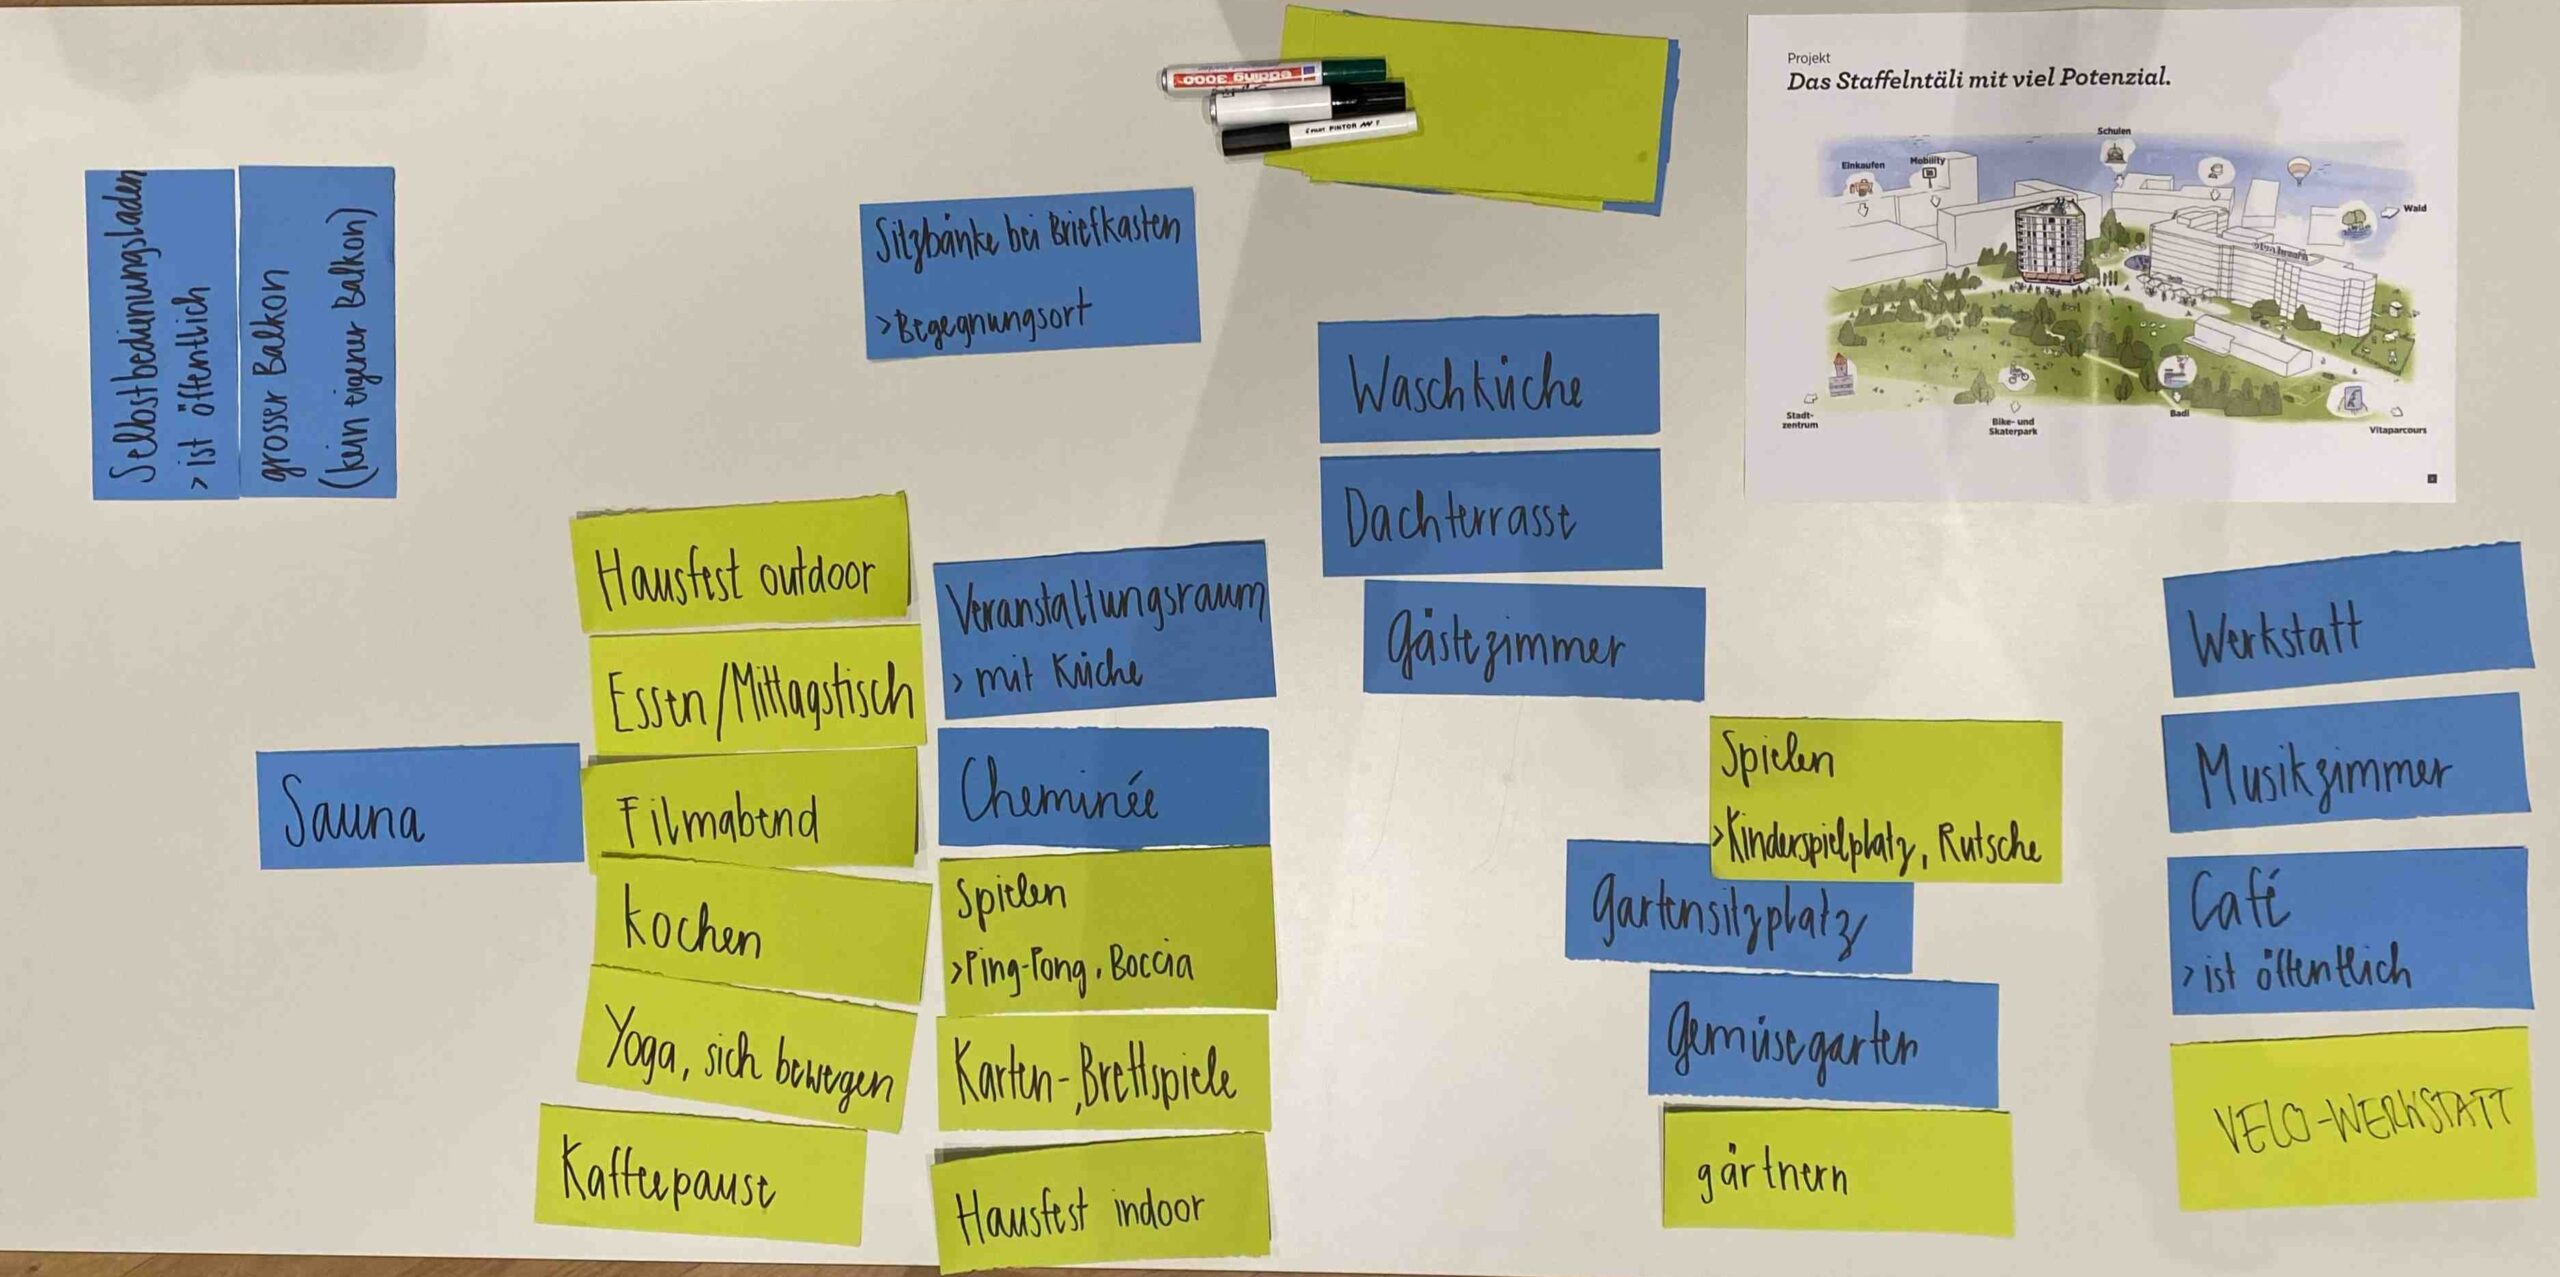 Selbstbedienungsladen
> ist öffentlich
grosser Balkon
(kein eigener Balkon)
Sitzbänke bei Briefkasten
> Begegnungsort
edding 3000
PILOT PINTOR
Projekt
Das Staffelntäli mit viel Potenzial.
Schulen
Einkaufen
Mobility
Wald
Stadt-
zentrum
Bike- und
Skaterpark
Badi
Vitaparcours
Waschküche
Dachterrasse
Gästezimmer
Hausfest outdoor
Essen/Mittagstisch
Filmabend
Kochen
Yoga, sich bewegen
Kaffeepause
Sauna
Veranstaltungsraum
> mit Küche
Cheminée
Spielen
> Ping-Pong, Boccia
Karten-, Brettspiele
Hausfest indoor
Spielen
> Kinderspielplatz, Rutsche
Gartensitzplatz
Gemüsegarten
gärtnern
Werkstatt
Musikzimmer
Café
> ist öffentlich
VELO-WERKSTATT